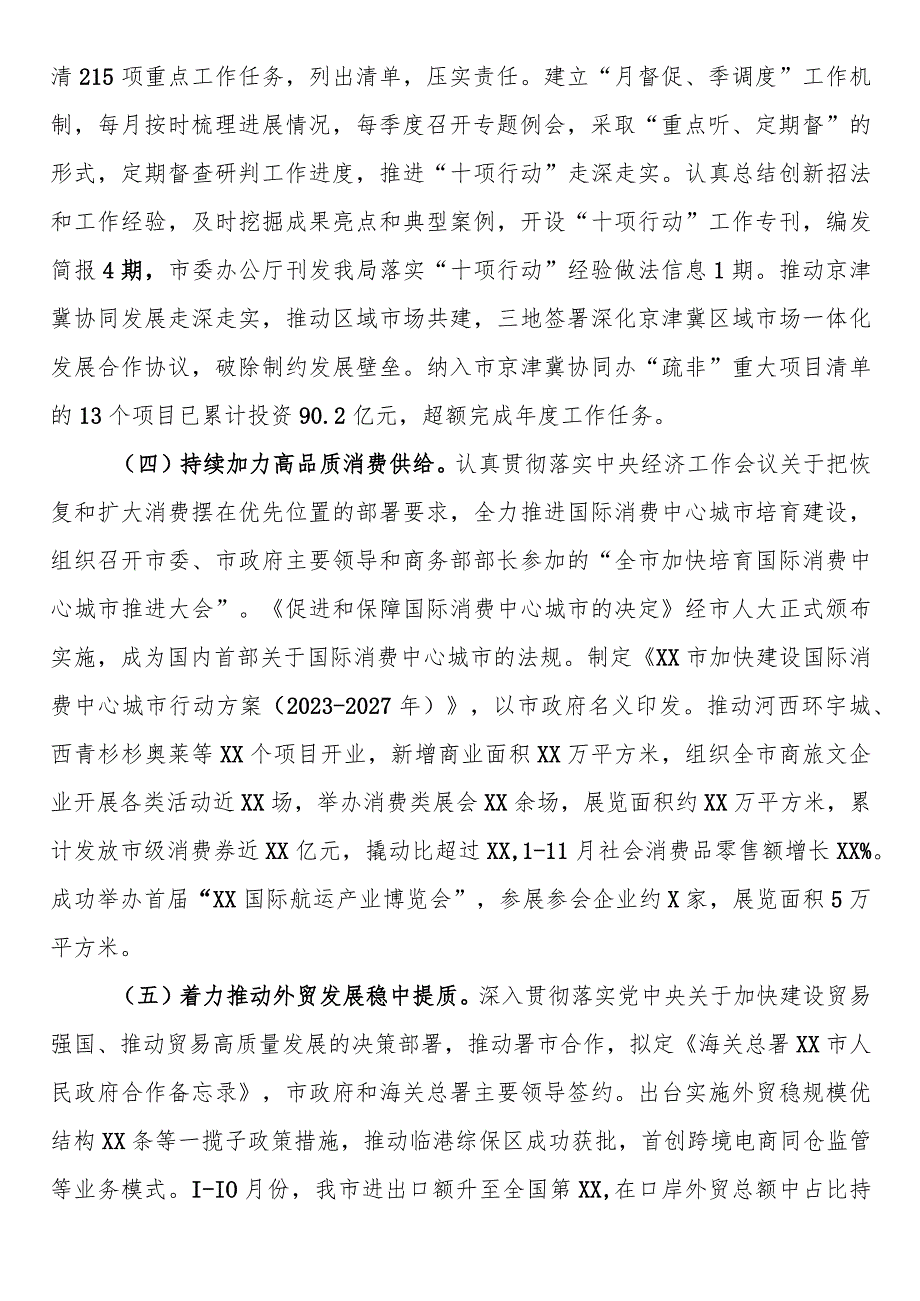 清 215 项重点工作任务，列出清单，压实责任。建立“月督促、季调度”工作机
制，每月按时梳理进展情况，每季度召开专题例会，采取“重点听、定期督”的
形式，定期督查研判工作进度，推进“十项行动”走深走实。认真总结创新招法
和工作经验，及时挖掘成果亮点和典型案例，开设“十项行动”工作专刊，编发
简报 4 期，市委办公厅刊发我局落实“十项行动”经验做法信息 1 期。推动京津
冀协同发展走深走实，推动区域市场共建，三地签署深化京津冀区域市场一体化
发展合作协议，破除制约发展壁垒。纳入市京津冀协同办“疏非”重大项目清单
的 13 个项目已累计投资 90.2 亿元，超额完成年度工作任务。
（四）持续加力高品质消费供给。认真贯彻落实中央经济工作会议关于把恢
复和扩大消费摆在优先位置的部署要求，全力推进国际消费中心城市培育建设，
组织召开市委、市政府主要领导和商务部部长参加的“全市加快培育国际消费中
心城市推进大会”。《促进和保障国际消费中心城市的决定》经市人大正式颁布
实施，成为国内首部关于国际消费中心城市的法规。制定《XX 市加快建设国际消
费中心城市行动方案（2023-2027 年）》，以市政府名义印发。推动河西环宇城、
西青杉杉奥莱等 XX 个项目开业，新增商业面积 XX 万平方米，组织全市商旅文企
业开展各类活动近 XX 场，举办消费类展会 XX 余场，展览面积约 XX 万平方米，累
计发放市级消费券近 XX 亿元，撬动比超过 XX,1-11 月社会消费品零售额增长 XX%。
成功举办首届“XX 国际航运产业博览会”，参展参会企业约 X 家，展览面积 5 万
平方米。
（五）着力推动外贸发展稳中提质。深入贯彻落实党中央关于加快建设贸易
强国、推动贸易高质量发展的决策部署，推动署市合作，拟定《海关总署 XX 市人
民政府合作备忘录》，市政府和海关总署主要领导签约。出台实施外贸稳规模优
结构 XX 条等一揽子政策措施，推动临港综保区成功获批，首创跨境电商同仓监管
等业务模式。I-IO 月份，我市进出口额升至全国第 XX,在口岸外贸总额中占比持